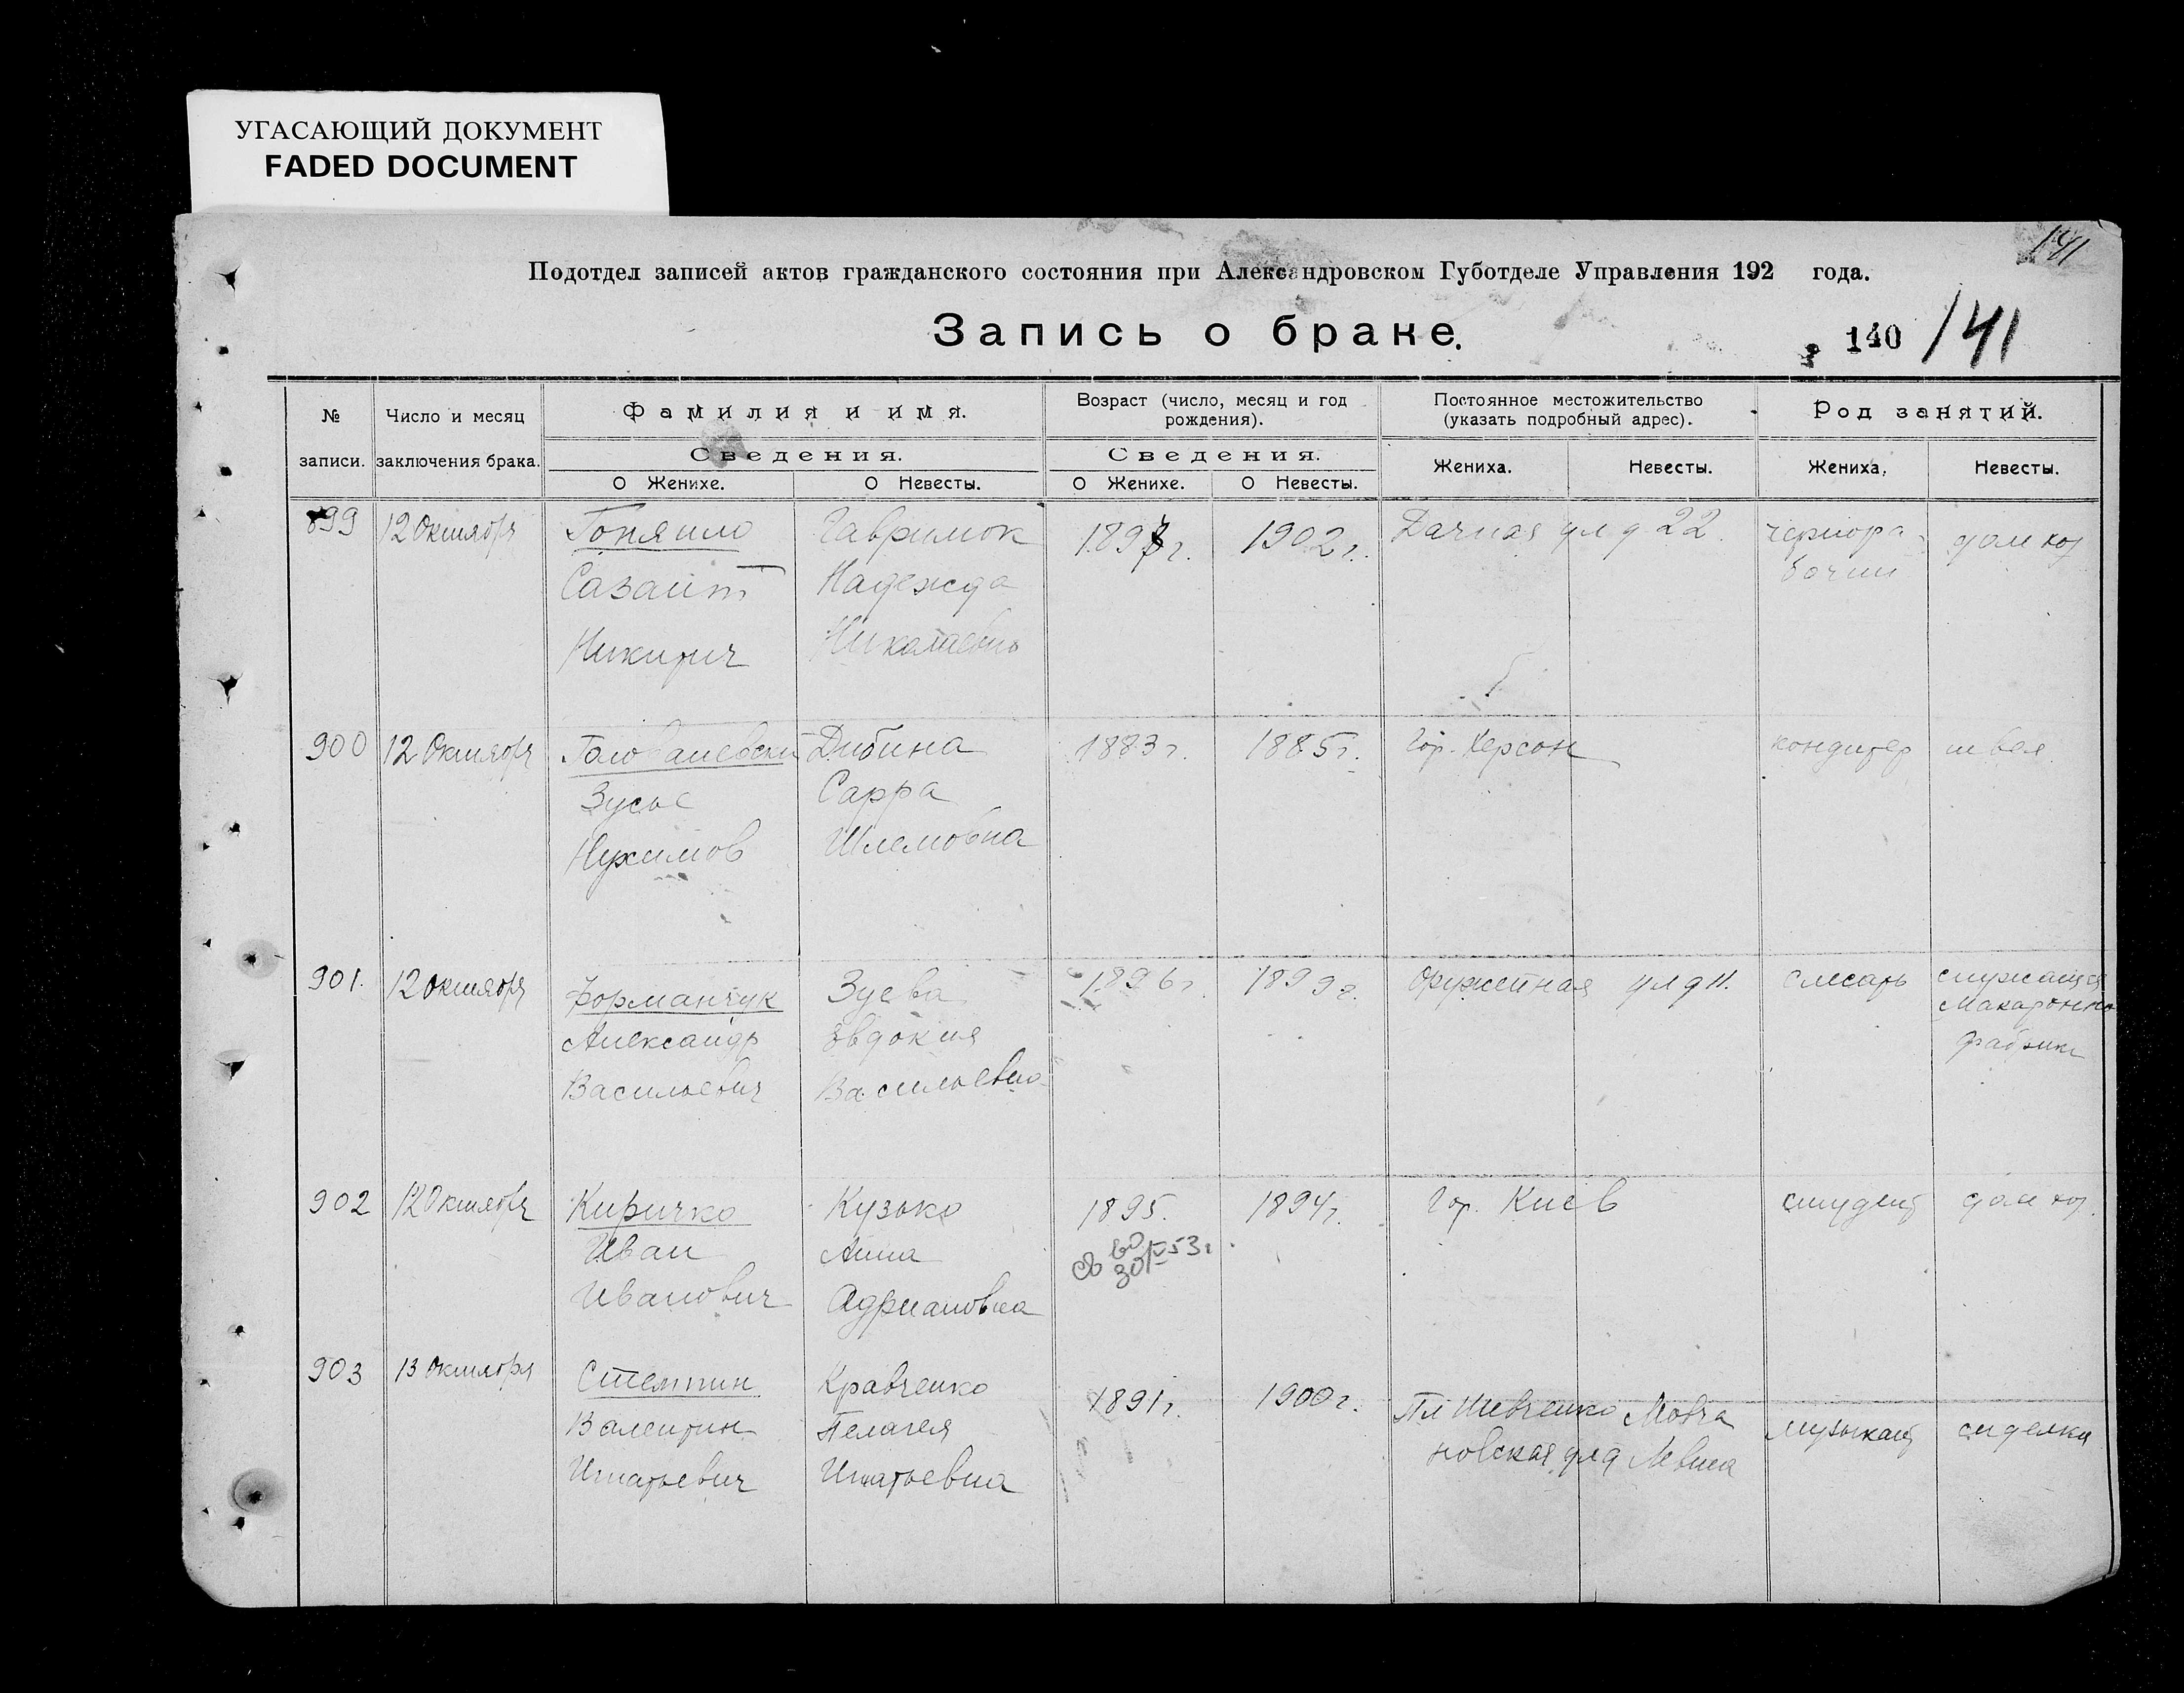 УГАСАЮЩИЙ ДОКУМЕНТ
FADED DOCUMENT
141
Подотдел записей актов гражданского состояния при Александровском Губотделе Управления 192 года.
Запись о браке.
140 141
№ записи.
Число и месяц заключения брака.
Фамилия и имя.
Сведения.
О Женихе.
О Невесты.
Возраст (число, месяц и год рождения).
Сведения.
О Женихе.
О Невесты.
Постоянное местожительство (указать подробный адрес).
Жениха.
Невесты.
Род занятий.
Жениха.
Невесты.
899 12 Октября
Никитич
Гаврилюк
Надежда
Николаевна
1902 г.
Дачная ул д 22
чернора-
бочий
дом хоз
900 12 Октября
Голованевский
Зусье
Нухимов
Дибина
Сарра
Шлемовна
1883 г.
1885 г.
Гор. Херсон
кондитер
швея
901. 12 Октября
Форманчук
Александр
Васильевич
Зуева
Евдокия
Васильевна
1896 г.
1899 г.
Оружейная ул д 11.
слесарь
служащая
Макаронно
фабрики
902 12 Октября
Киричко
Иван
Иванович
Кузько
Анна
Адриановна
1895.
1894 г.
Гор. Киев
студент
дом хоз.
903 13 Октября
Стемпин
Валентин
Игнатьевич
Кравченко
Пелагея
Игнатьевна
1891 г.
1900 г.
Пл Шевченко Мовча
новская ул д Левина
музыкант
сиделка